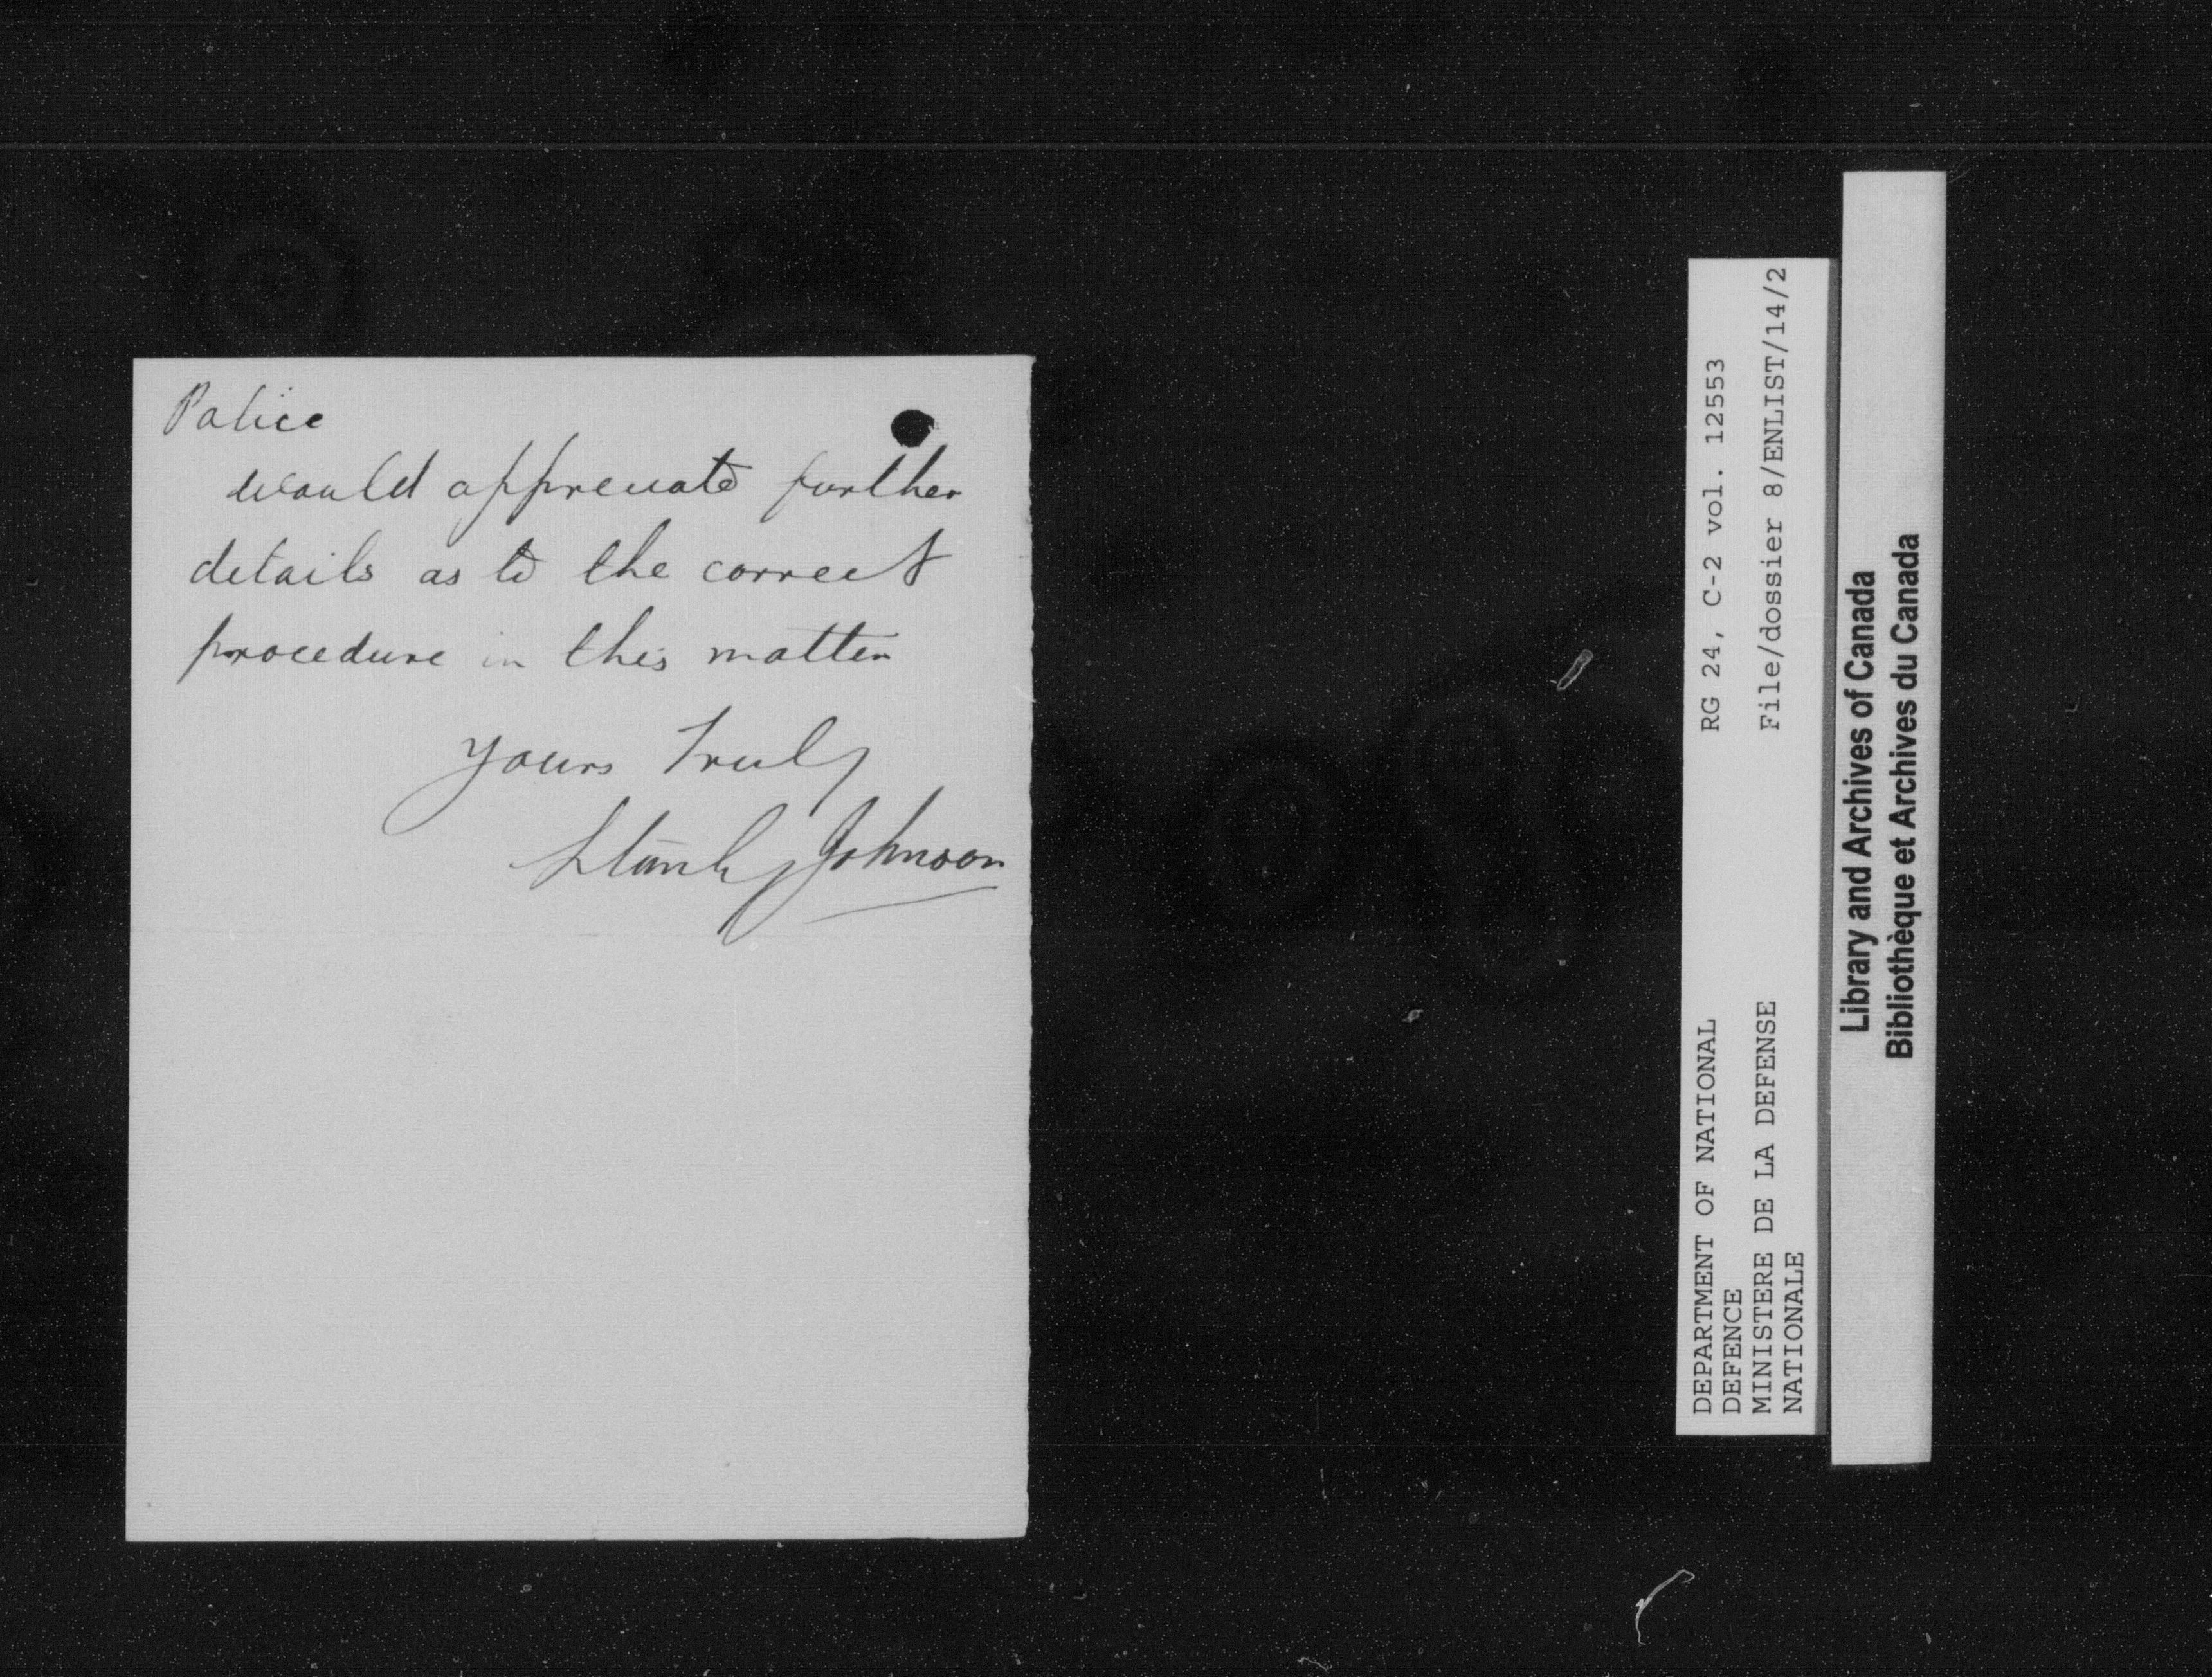 Police
would appreciate further
details as to the correct
procedure in this matter
Yours Truly
Stanley Johnson
RG 24, C-2 vol. 12553
File/dossier 8/ENLIST/14/2
DEPARTMENT OF NATIONAL
DEFENCE
MINISTERE DE LA DEFENSE
NATIONALE
Library and Archives of Canada
Bibliothèque et Archives du Canada